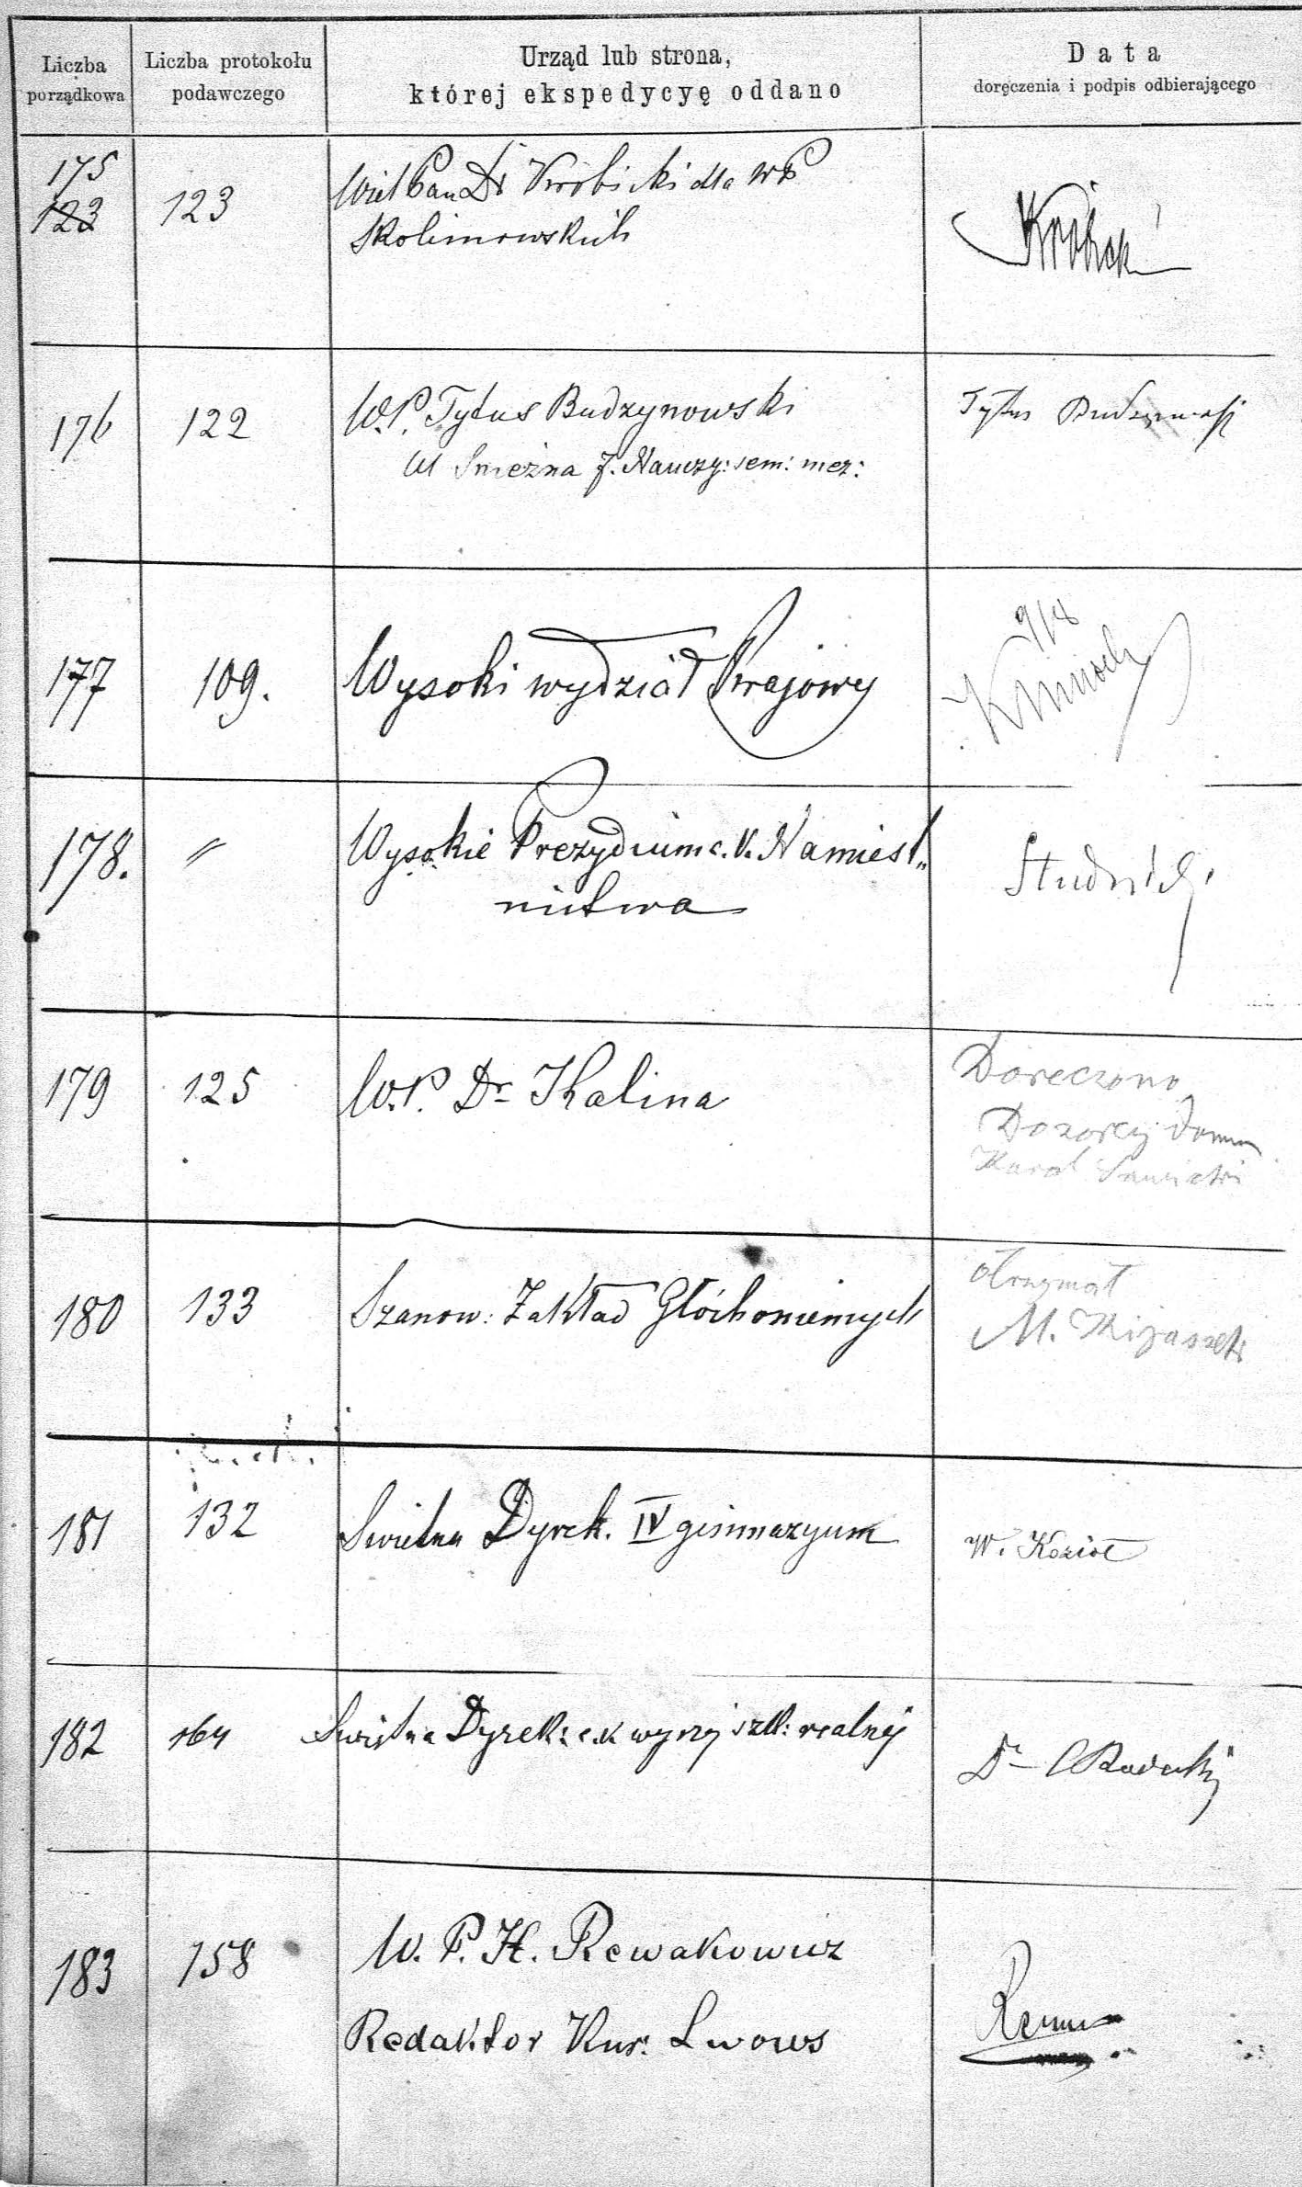 Liczba
porządkowa
Liczba protokołu
podawczego
Urząd lub strona,
której ekspedycyę oddano
Data
doręczenia i podpis odbierającego
175
123
123
Wiel Pan Dr Krobicki dla WP
Skolimowskich
176
122
W.P. Tytus Budzynowski
Ul Śnieżna 7. Nauczy: sem: męz:
Tytus Budzynowski
177
109.
Wysoki wydział Krajowy
178.
"
Wysokie Prezydium c. K. Namiest„
nictwa
Studnicki
179
125
W.P. Dr Kalina
Doreczono
Dozorcy domu
Karol
180
133
Szanow: Zakład Głóchoniemych
otrzymał
M.
181
132
Swietna Dyrek. IV gimnazyum
W. Kozioł
182
164
Swietna Dyrek: c.k wyzej szk: realnej
Dr
183
158
W. P. H. Rewakowicz
Redaktor Kur: Lwows